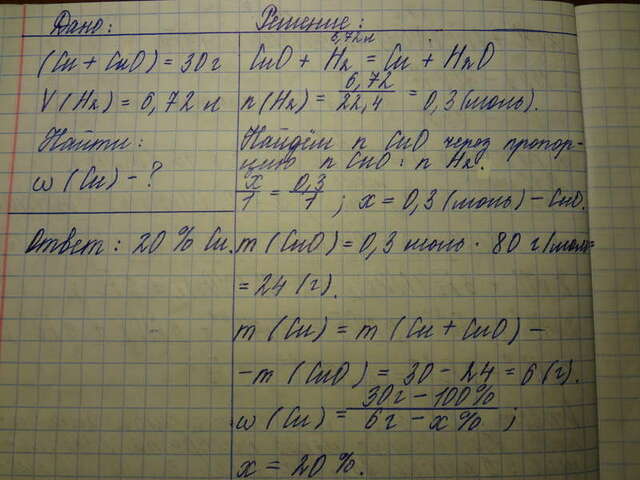 Дано:
(Cu + CuO) = 30 г
V (H₂) = 6,72 л
Найти:
ω (Cu) - ?
Ответ: 20 % Cu.
Решение:
6,72 л
CuO + H₂ = Cu + H₂O
n (H₂) = 6,72 / 22,4 = 0,3 (моль).
Найдём n CuO через пропор-
цию n CuO : n H₂.
x / 1 = 0,3 / 1 ; x = 0,3 (моль) - CuO.
m (CuO) = 0,3 моль · 80 г/моль=
= 24 (г).
m (Cu) = m (Cu + CuO) -
- m (CuO) = 30 - 24 = 6 (г).
ω (Cu) = 30 г - 100 % / 6 г - x % ;
x = 20 %.